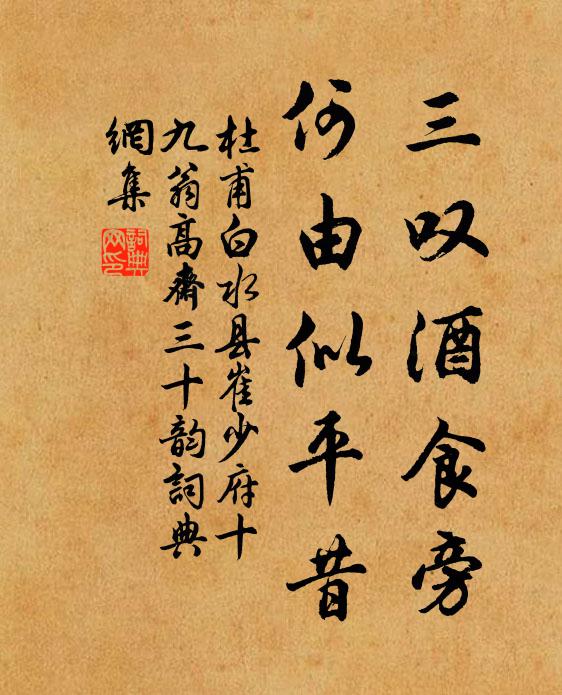 三叹酒食旁
何由似平昔
杜甫白水县崔少府十
九翁高斋三十韵詞典
網集
詞典
网印